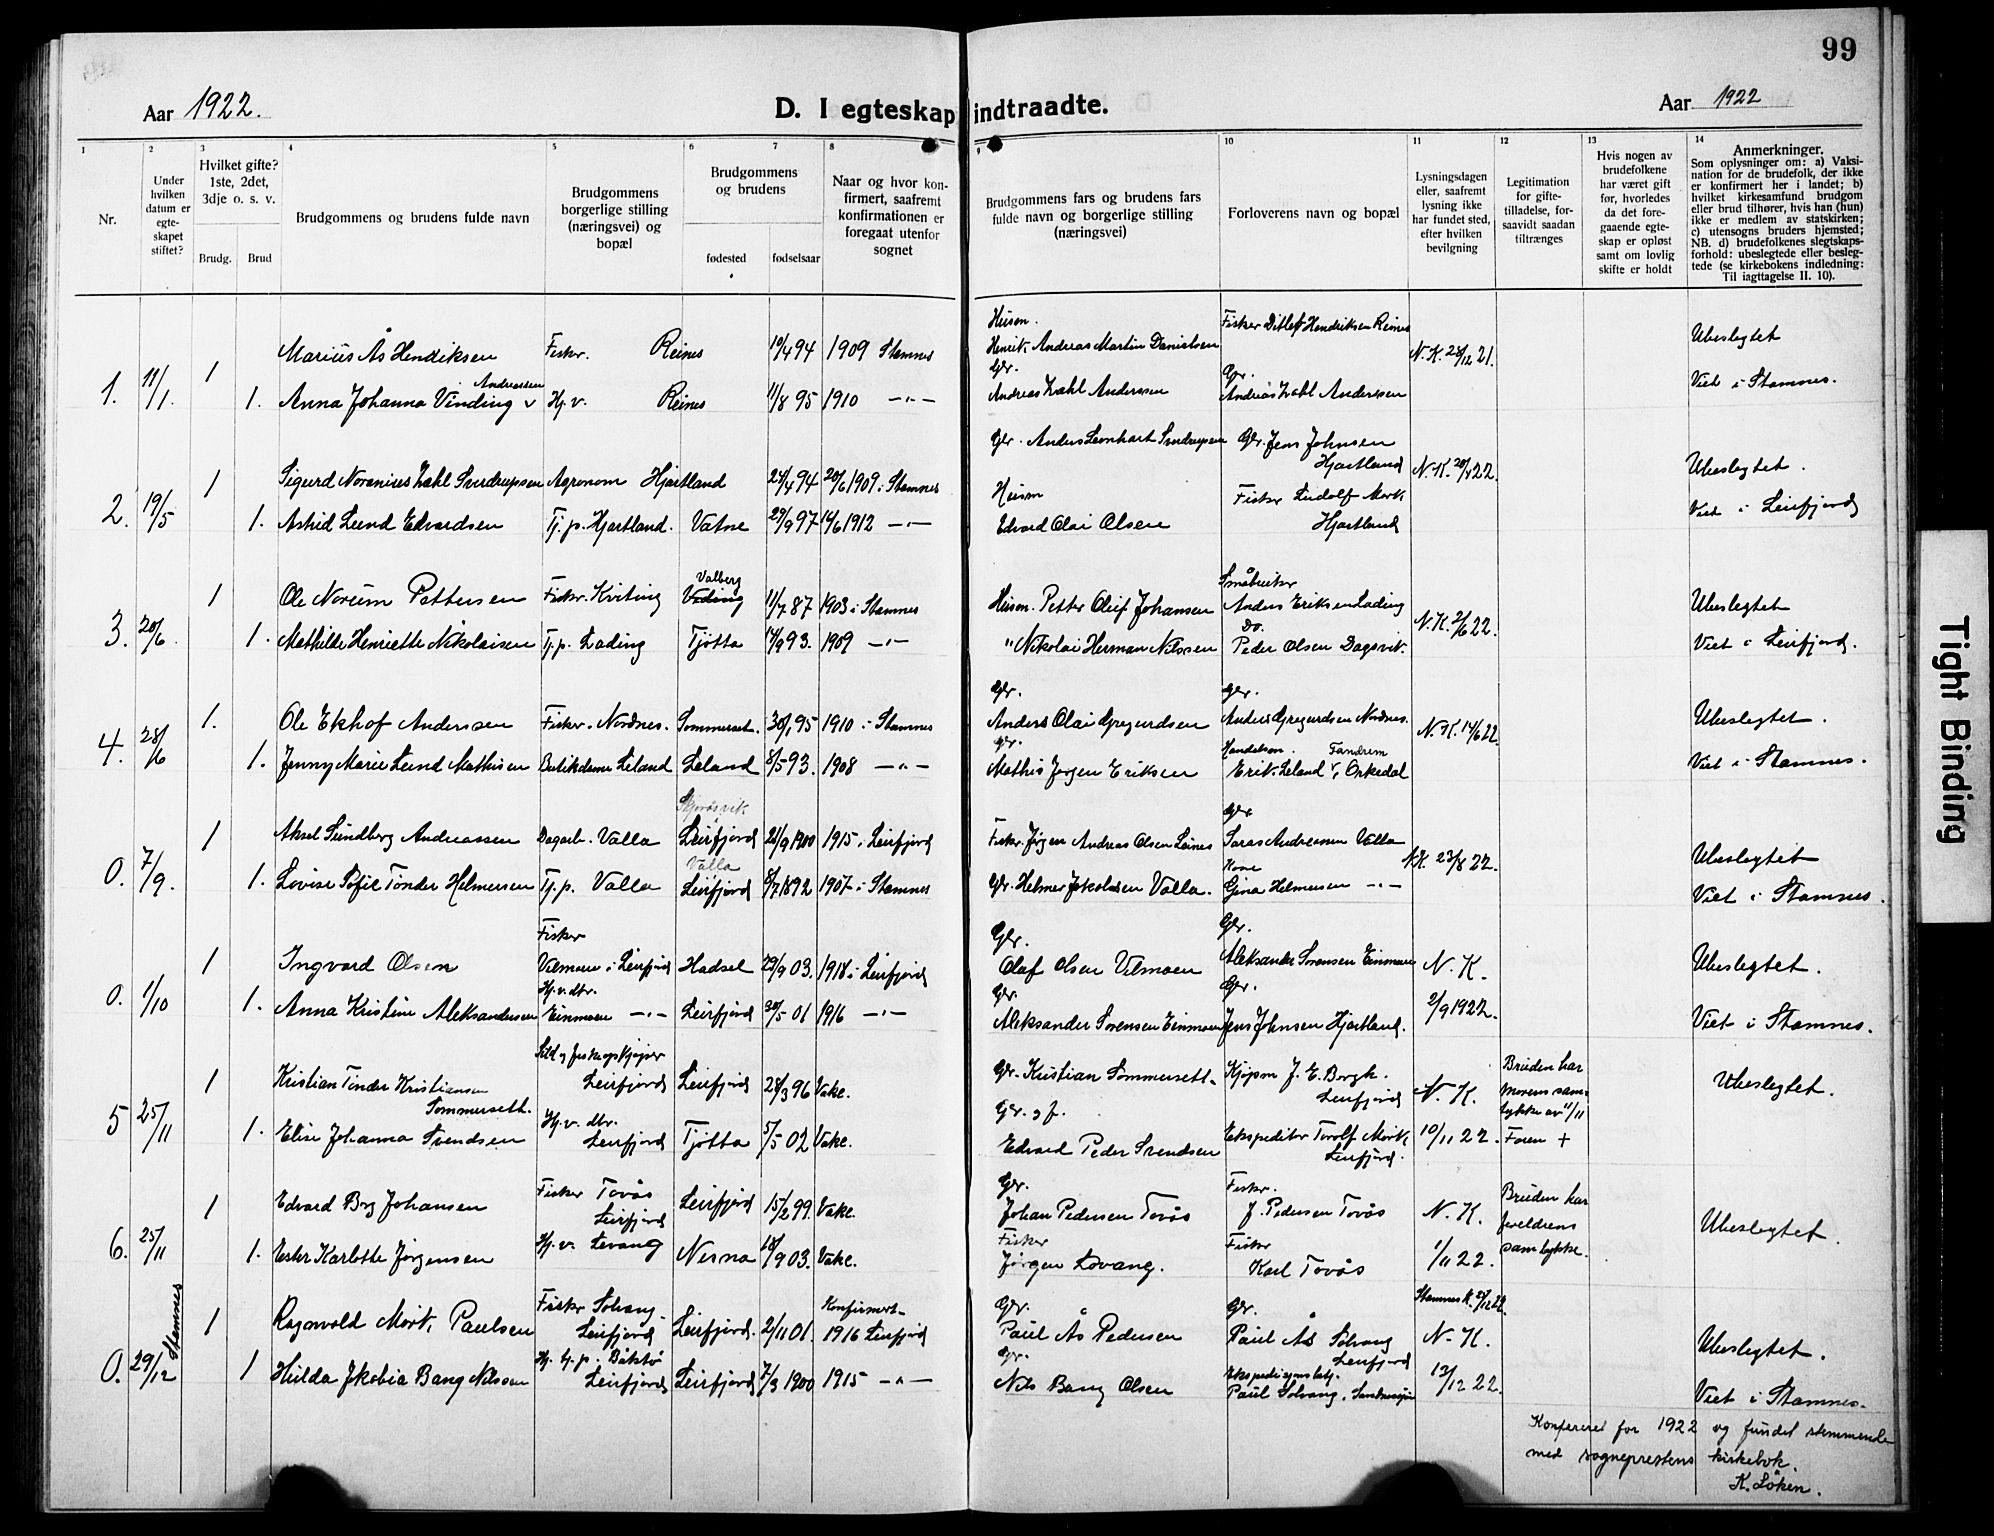 99
Aar 1922.
D. I egteskap indtraadte.
Aar 1922
1 2 3 4 5 6 7 8 9 10 11 12 13 14
Nr.
Under hvilken datum er egte-skapet stiftet?
Hvilket gifte? 1ste, 2det, 3dje o. s. v.
Brudg. Brud
Brudgommens og brudens fulde navn
Brudgommens borgerlige stilling (næringsvei) og bopæl
Brudgommens og brudens
fødested fødselsaar
Naar og hvor kon-firmert, saafremt konfirmationen er foregaat utenfor sognet
Brudgommens fars og brudens fars fulde navn og borgerlige stilling (næringsvei)
Forloverens navn og bopæl
Lysningsdagen eller, saafremt lysning ikke har fundet sted, efter hvilken bevilgning
Legitimation for gifte-tilladelse, for-saavidt saadan tiltrænges
Hvis nogen av brudefolkene har været gift før, hvorledes da det fore-gaaende egte-skap er opløst samt om lovlig skifte er holdt
Anmerkninger.
Som oplysninger om: a) Vaksi-nation for de brudefolk, der ikke er konfirmert her i landet; b) hvilket kirkesamfund brudgom eller brud tilhører, hvis han (hun) ikke er medlem av statskirken; c) utensogns bruders hjemsted; NB. d) brudefolkenes slegtskaps-forhold: ubeslegtede eller besleg-tede (se kirkebokens indledning: Til iagttagelse II. 10).
Husm. Fisker Ditlef Hendriksen Reines
1. 11/1. 1 Marius Ås Hendiksen Fisker. Reines 10/4 94 1909 Stamnes Henrik Andreas Martin Danielsen N. K. 28/12 21. Ubeslegtet
Andreassen Gr. Gr.
1. Anna Johanna Vinding v Hj. v. Reines 11/8 95 1910 —"— Andreas Zahl Anderssen Andreas Zahl Anderssen Viet i Stamnes.
Gbr. Anders Leonhart Sverdrupsen Gbr. Jens Johnsen Hjartland
2. 19/5 1 Sigurd Noranius Zahl Sverdrupsen Agronom Hjartland 24/4 94 20/6 1909 i Stamnes N. K. 20/4 22. Ubeslegtet.
Husm Fisker Ludolf Mork
1. Astrid Lund Edvardsen Tj. p. Hjartland. Vatne 29/9 97 14/6 1912 —"— Edvard Olai Olsen Hjartland Viet i Leirfjord
Valberg Småbruker
3. 20/6. 1 Ole Norum Pettersen Fisker. Kviting Viding 11/7 87 1903 i Stamnes Husm. Petter Oluf Johansen Anders Eriksen Lading N. K. 2/6 22. Ubeslegtet
Do.
1. Mathilde Henriette Nikolaisen Tj. p. Lading Tjötta 14/9 93. 1909 —"— " Nikolai Herman Nilssen Peder Olsen Dagsvik. Viet i Leirfjord.
Gbr. Gbr.
4. 28/6 1. Ole Ekhof Anderssen Fisker. Nordnes. Sommerset. 30/1 95 1910 i Stamnes Anders Olai Gregersen Anders Gregersen Nordnes. N. K. 14/6 22. Ubeslegtet.
Gr. Handelsm. Fandrem
1. Jenny Marie Lund Mathisen Butikdame Leland Leland 8/5 93. 1908 —"— Mathis Jørgen Eriksen Erik Leland v, Orkedal Viet i Stamnes.
Gbr
0. 7/9. 1 Aksel Sundberg Andreassen Dagarb. Valla Leirfjord 21/9 1900 1915 i Leirfjord Fisker. Jörgen Andreas Olsen Leines Andreassen Valla N.K. 23/8 22. Ubeslegtet
Valla Kone
1. Lovise Sofie Tönder Helmersen Tj. p. Valla Leirfjord 8/7 1892 1907 i Stamnes Gbr. Helmer Jakobsen Valla. Gina Helmersen —"— Viet i Stamnes.
Fisker Gbr. Gbr.
0. 1/10 1 Ingvard Olsen Ulmoen i Leirfjord Hadsel 29/9 03. 1918 i Leirfjord Olaf Olsen Ulmoen Aleksander Sorensen Einmoen N. K. Ubeslegtet.
Hj. v. dtr. Gbr. Gbr.
1. Anna Kristine Aleksandersen Einmoen —"— Leirfjord 30/5 01 1916 —"— Aleksander Sorensen Einmoen Jens Johnsen Hjartland. 2/9 1922. Viet i Stamnes.
Sild og
5 25/11 1 Kristian Tönder Kristiansen Sommerseth. Leirfjord Leirfjord 28/3 96 Vake. Gbr. Kristian Sommerseth. Kjøpm J. E. Borgh. Leirfjord N. K. Bruden har morens sam-tykke av 11/11 Ubeslegtet.
Hj. v. dtr. Gbr. og f.
1. Elise Johanna Svendsen Leirfjord Tjötta 5/5 02 Vake. Edvard Peder Svendsen Ekspeditør Torolf Mørk, Leirfjord. 10/11 22. Faren +
Gbr. Fisker.
6. 25/11 1 Edvard Brg Johansen Fisker Tovås Leirfjord Leirfjord 15/2 99. Vake. Johan Pedersen Tovås J. Pedersen Tovås N. K. Bruden har foreldrens samtykke. Ubeslegtet.
Fisker Fisker
1. Ester Karlotte Jørgensen Hj. v. Levang Nesna 18/9 03. Vake. Jørgen Lovang. Karl Tovås 1/11 22.
Stamnes Konfirmert Gbr. Gbr. Stamnes K. 5/12 22
0. 29/12 1 Ragnvald Mørk, Paulsen Fisker Solvang Leirfjord Leirfjord. 2/11 01. 1916 Leirfjord Paul Ås Pedersen Paul Ås Solvang Leirfjord N. K. Ubeslegtet.
Gr.
1 Hulda Jkobia Bang Nilssen Hj. tj. p. Båkstø Leirfjord Leirfjord 7/3 1900 1915 —"— Nils Bang Olsen Paul Solvang, 13/12 22. Viet i Stamnes.
Konfereret for 1922 og fundet stemmende
med sogneprestens kirkebok.
K. Löken.
Tight Binding